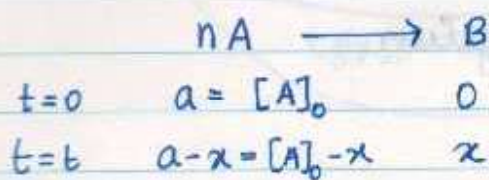 nA ⟶ B
t=0 a = [A]₀ 0
t=t a-x = [A]₀-x x